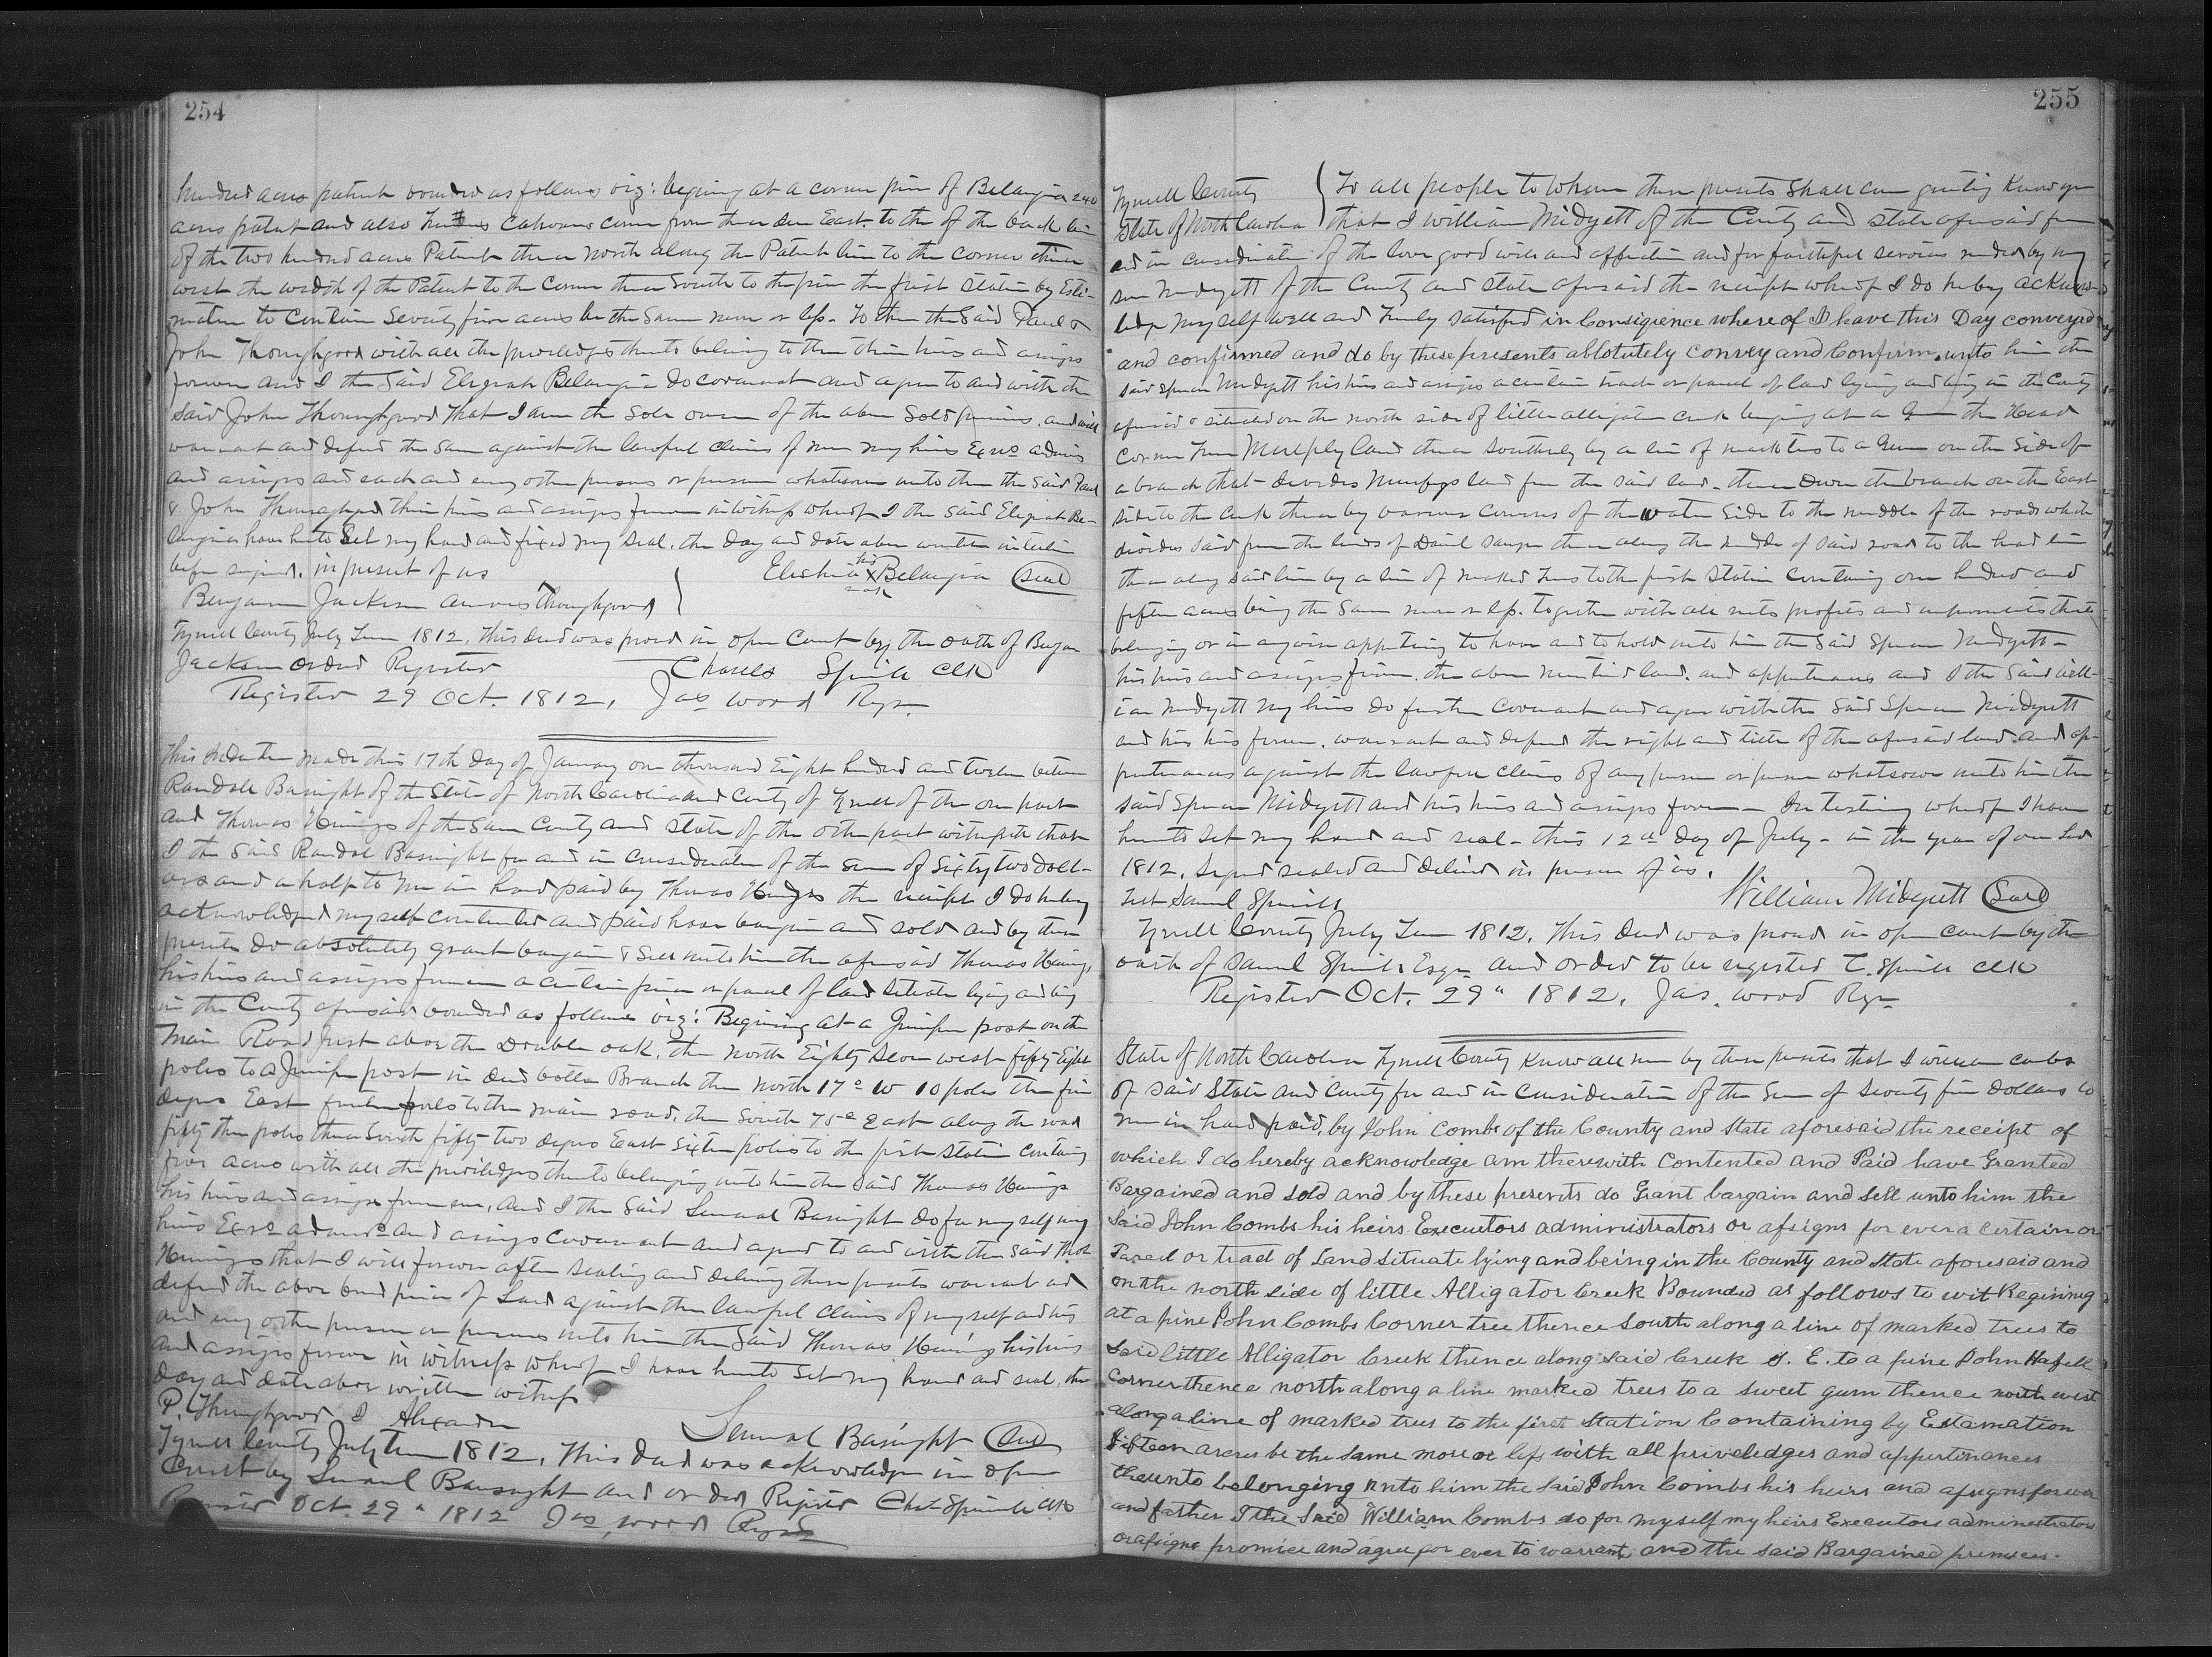 254
hundred acres patent bounded as follows viz: begining at a corner pine of Belangia 240
acres patent and also corner from thence East to the of the back line
of the two hundred acres Patent thence North along the Patent line to the corner thence
west the width of the Patent to the corner thence South to the pine the first station by Esti-
mation to contain Seventy five acres be the Same more or less. To them the Said Paul &
John Thoroughgood with all the priviledges thereto belonging to them their heirs and assigns
forever and I the Said Belangia do covenant and agree to and with the
said John Thoroughgood that I am the sole owner of the above Sold premises, and will
warrant and defend the same against the lawful claims of me my heirs Exrs admrs
and assigns and each and every other persons or person whatsoever unto them the said Paul
& John Thoroughgood their heirs and assigns forever in witness whereof I the said Be-
langia have hereto Set my hand and fixed my Seal, the day and date above written interlin
before signed. in present of us
his X mark Belangia Seal
Benjamin Jackson Thoroughgood
Tyrrell County July Term 1812. This deed was proved in open Court by the oath of Benjan
Jackson ordered Register
Charles Spruill Clk
Register 29 Oct. 1812, Jas wood Regr.
This Indenture made this 17th day of January one thousand Eight hundred and twelve between
Randole Basnight of the State of North Carolina and County of Tyrrell of the one part
and Thomas of the Same County and State of the other part witnesseth that
I the said Randol Basnight for and in consideration of the sum of Sixty two doll-
ars and a half to me in hand paid by Thomas the receipt I do hereby
acknowledged myself contented and paid have bargain and sold and by these
presents do absolutely grant bargain & Sell unto him the aforesaid Thomas
his heirs and assigns forever a certain piece or parcel of land situate lying and being
in the County aforesaid bounded as follows viz: Begining at a Juniper post on the
Main Road just above the Double oak, then North Eighty Seven west fifty Eight
poles to a Juniper post in Branch then North 17° W 10 poles then five
degrees East poles to the main road, then South 75° East along the road
fifty three poles thence South fifty two degrees East Sixteen poles to the first station containing
five acres with all the priviledges thereto belonging unto him the said Thomas
his heirs and assigns forever, And I the Said Lemuel Basnight do for myself my
heirs Exrs admrs and assigns covenant and agreed to and with the said Thos
that I will forever after sealing and delivering these presents warrant and
defend the above piece of Land against the lawful claims of myself and heirs
and every other person or persons unto him the Said Thomas his heirs
and assigns forever in witness whereof I have hereunto Set my hand and seal, the
day and date above written witness
P. Thoroughgood I Alexander
Lemual Basnight Seal
Tyrrell County July Term 1812. This deed was acknowledge in open
Court by Lemuel Basnight and ordered Register Chas Spruill Clk
Register Oct. 29th 1812 Jas wood Regr
255
Tyrrell County
State of North Carolina
To all people to whom these presents shall come greeting Know ye
that I william Midgett of the County and State aforesaid for
and in consideration of the love good will and affection and for faithful services rendred by my
son Midgett of the County and State aforesaid the receipt whereof I do hereby acknow-
ledge myself well and Truly satisfied in Consiqience whereof I have this Day conveyed
and confirmed and do by these presents ablolutely convey and Confirm, unto him the
said Midgett his heirs and assigns a certain tract or parcel of land lying and being in the County
aforesaid & situated on the north side of little alligator creek begining at a Gum the Head
Corner Tree land thence southerly by a line of marked trees to a Gum on the side of
a branch that devides land from the said land. thence Down the branch on the East
side to the creek thence by various courses of the water side to the middle of the road which
devides said from the lands of Daniel thence along the middle of said road to the head line
thence along said line by a line of maked trees to the first station containing one hundred and
fifteen acres being the Same more or less. together with all profits and improvements thereto
belonging or in anywise appertaining to have and to hold unto him the said Midgett
his heirs and assigns forever. the above mentioned land. and appurtenances and I the said Will-
iam Midgett my heirs do further covenant and agree with the said Midgett
and his heirs forever. warrant and defend the right and title of the aforesaid land and ap-
purtenances against the lawful claims of any person or persons whatsoever unto him the
said Midgett and his heirs and assigns forever — In testimony whereof I have
hereunto set my hand and seal - this 12th day of July - in the year of our Lord
1812. signed sealed and delivered in presence of us.
William Midgett Seal
Test Samuel Spruill
Tyrrell County July Term 1812. This deed was proved in open court by the
oath of Samuel Spruill Esqr and ordered to be registed C. Spruill Clk
Register Oct. 29th 1812. Jas. wood Regr
State of North Carolina Tyrrell County Know all men by these presents that I william combs
of said State and County for and in consideration of the Sum of Seventy five Dollars to
me in hand paid, by John Combs of the County and State aforesaid the receipt of
which I do hereby acknowledge am therewith contented and Paid have Granted
Bargained and sold and by these presents do Grant bargain and sell unto him the
said John Combs his heirs Executors administrators or assigns for ever a certain or
Parcel or tract of Land situate lying and being in the County and State aforesaid and
on the north side of little Alligator Creek Bounded as follows to wit Begining
at a pine John Combs Corner tree thence South along a line of marked trees to
said little Alligator Creek thence along said Creek S. E. to a pine John Hassell
corner thence north along a line marked trees to a sweet gum thence north west
along a line of marked trees to the first Station Containing by Estamation
fifteen acres be the same more or less with all priveledges and appertinances
theunto belonging unto him the said John Combs his heirs and assigns forever
and farther I the said William Combs do for myself my heirs Executors administrators
or assigns promise and agree for ever to warrant and the said Bargained premises.